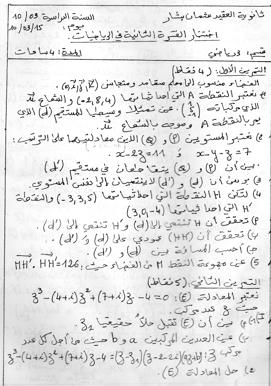 ثانوية العقيد عثمان بشار السنة الدراسية 09/10
يوم: 10/03/15
اختبار الفترة الثانية في الرياضيات
قسم: 3 رياضي المدة: 4 ساعات
التمرين الأول: (4 نقاط)
الفضاء منسوب إلى معلم متعامد ومتجانس
نعتبر النقطة A التي إحداثياتها (-2,8,4) والشعاع
الذي مركباته عين تمثيلا وسيطيا للمستقيم (d) الذي
يمر بالنقطة A وموجه بالشعاع
نعتبر المستويين (P) و (Q) الذين معادلتيهما على الترتيب:
x-y-z=7 و x-2z=11
بين أن (P) و (Q) يتقاطعان في مستقيم (d')
برهن أن (d) و (d') لا ينتميان إلى نفس المستوي
لتكن H النقطة التي إحداثياتها (-3,3,5) والنقطة
H' التي إحداثياتها (3,0,-4)
تحقق أن H تنتمي إلى (d) و H' تنتمي إلى (d')
تحقق أن (HH') عمودي على (d) و (d')
أحسب المسافة بين (d) و (d')
عين مجموعة النقط M من الفضاء حيث: MH'.HH'=126
التمرين الثاني: (5 نقاط)
نعتبر المعادلة (E): z³-(4+i)z²+(7+i)z-4=0
حيث z عدد مركب
بين أن (E) تقبل حلا حقيقيا z₁
عين العددين المركبين a و b حيث من أجل كل عدد
مركب z: z³-(4+i)z²+(7+i)z-4=(z-z₁)(z-2-2i)(az+b)
حل المعادلة (E)